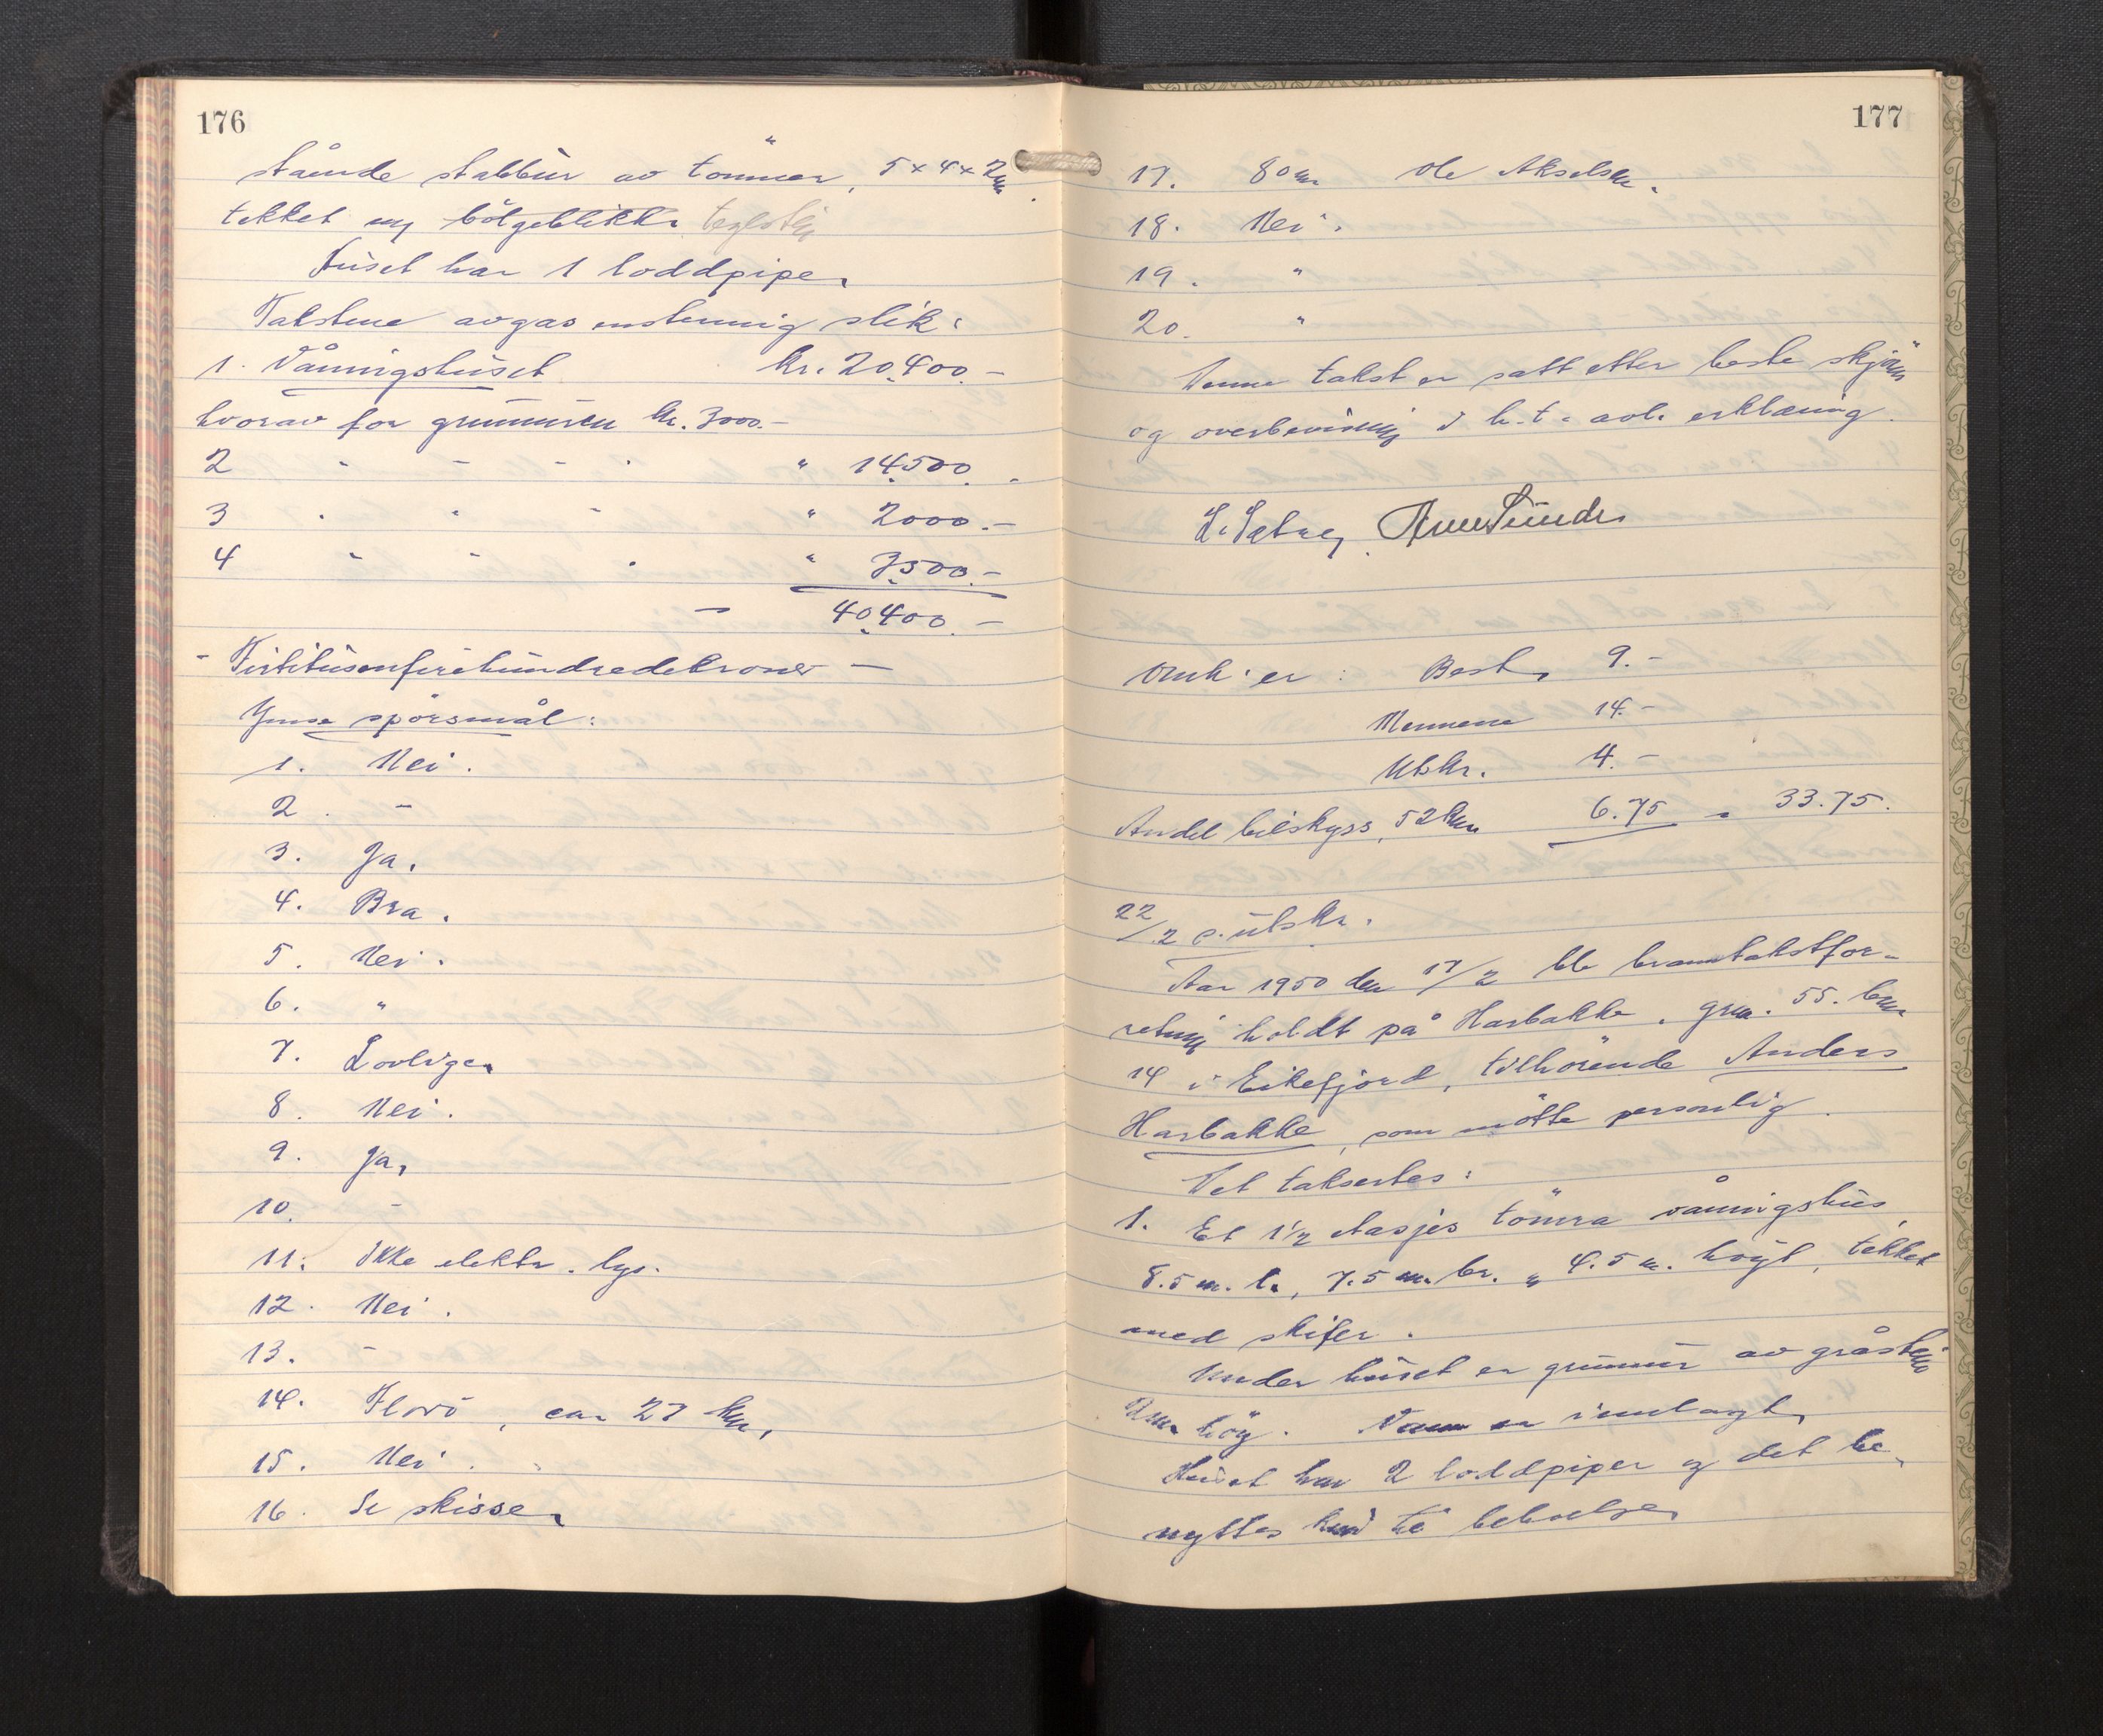 176
stående stabbur av tömmer, 5 x 4 x 2m
tekket m/ bölgeblikk. teglstein
Huset har 1 loddpipe.
Takstene avgas enstemmig slik:
1. Våningshuset kr. 20.400.-
hvorav for grunnmuren kr. 3000.-
2 - - - - " 14.500.-
3 - - - " 2000.-
4 - - - " 3.500.-
- 40.400.-
- Firtitusenfirehundredekroner -
Ymse spörsmål:
1. Nei.
2. -
3. Ja.
4. Bra.
5. Nei.
6. "
7. Lovlige.
8. Nei.
9. Ja.
10. -
11. Ikke elektr. lys.
12. Nei.
13. -
14. Florö, ca. 27 km.
15. Nei.
16. Se skisse.
177
17. 80m Ole Akselsen.
18. Nei.
19. "
20. "
Denne takst er satt etter beste skjönn
og overbevisning i h.t. avl. erklæring.
Omk. er: Best. 9.-
Mennene 14.-
Utskr. 4.-
Andel bilskyss, 52km 6.75 = 33.75.
22/2 s. utskr.
Aar 1950 den 17/2 ble branntakstfor-
retning holdt på Harbakke, gnr. 55. bnr
14 i Eikefjord, tilhörende Anders
Harbakke, som mötte personlig.
Det taksertes:
1. Et 1 1/2 etasjes tömra våningshus
8.5 m. l., 7.5 m. br. " 4.5 m. höyt, tekket
med skifer.
Under huset er grunnmur av gråstein
2m. höy. Vann er innlagt.
Huset har 2 loddpiper og det be-
nyttes kun til beboelse.